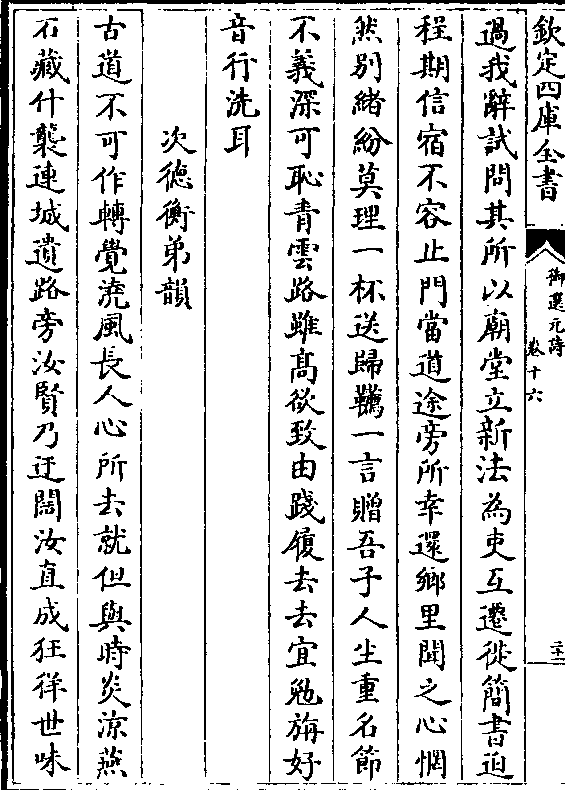 欽定四庫全書
御選元詩
卷十六
過我辭試問其所以廟堂立新法為吏互遷徙簡書迫
程期信宿不容止門當道途旁所幸還鄉里聞之心惘
然别緒紛莫理一杯送歸鞿一言贈吾子人生重名節
不義深可恥青雲路雖髙欲致由踐履去去宜勉旃好
音行洗耳
次德衡弟韻
古道不可作轉覺澆風長人心所去就但與時炎涼燕
石藏什襲連城遺路旁汝賢乃迂闊汝直成狂徉世味